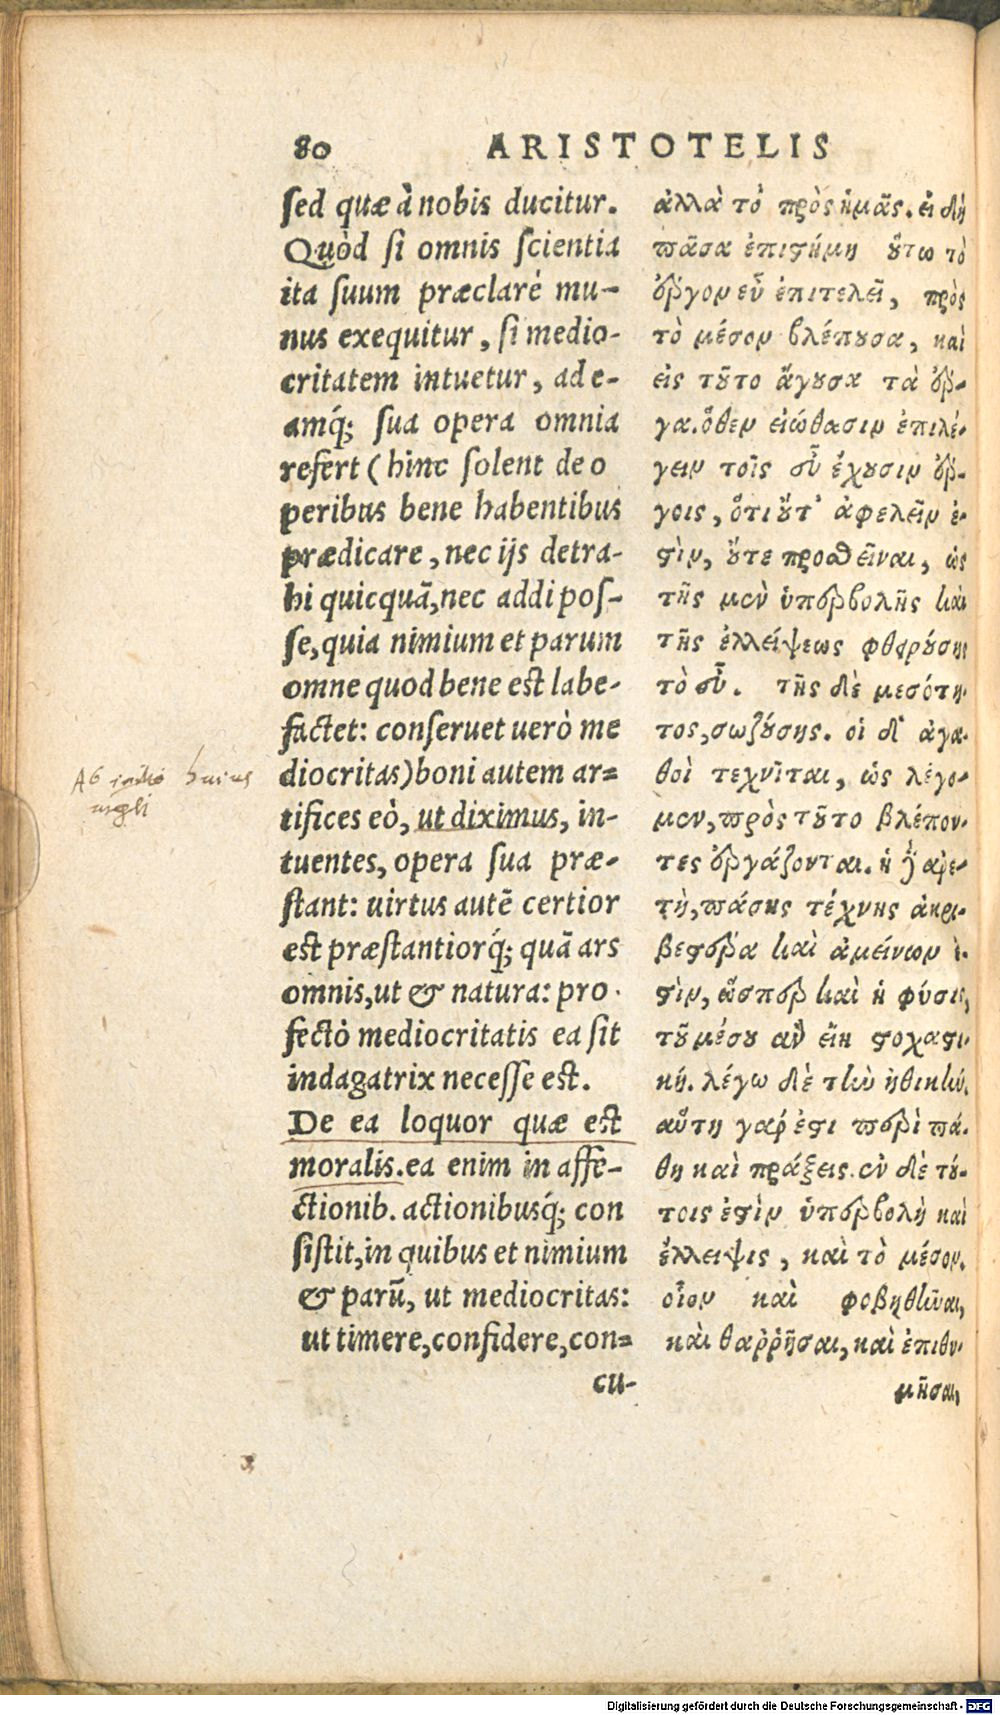 80 ARISTOTELIS
sed quæ à nobis ducitur.
Quòd si omnis scientia
ita suum præclaré mu-
nus exequitur, si medio-
critatem intuetur, ad e-
amq́; sua opera omnia
refert (hinc solent de o
peribus bene habentibus
prædicare, nec ijs detra-
hi quicquã, nec addi pos-
se, quia nimium et parum
omne quod bene est labe-
factet: conseruet uerò me
diocritas) boni autem ar=
tifices eò, ut diximus, in-
tuentes, opera sua præ-
stant: uirtus autẽ certior
est præstantiorq́; quã ars
omnis, ut & natura: pro
fectò mediocritatis ea sit
indagatrix necesse est.
De ea loquor quæ est
moralis. ea enim in affe-
ctionib. actionibusq́; con
sistit, in quibus et nimium
& parũ, ut mediocritas:
ut timere, confidere, con=
cu-
ἀλλὰ τὸ πρὸς ἡμᾶς. εἰ δὴ
πᾶσα ἐπιϛήμη ȣ̔́τω τὸ
ἔργον εὖ ἐπιτελεῖ, πρὸς
τὸ μέσον βλέπȣσα, καὶ
εἰς τȣ͂το ἄγȣσα τὰ ἔρ-
γα. ὅθεν εἰώθασιν ἐπιλέ-
γειν τοῖς εὖ ἔχȣσιν ἔρ-
γοις, ὅτι ȣ̓́τ' ἀφελεῖν ἔ-
ϛὶν, ȣ̓́τε προσθεῖναι, ὡς
τῆς μὲν ὑπερβολῆς καὶ
τῆς ἐλλείψεως φθειρȣ́σης
τὸ εὖ. τῆς δὲ μεσότη-
τος, σωζȣ́σης. οἱ δ' ἀγα-
θοὶ τεχνῖται, ὡς λέγο-
μεν, πρὸς τȣ͂το βλέπον-
τες ἐργάζονται. ἡ δ' ἀρε-
τὴ, πάσης τέχνης ἀκρι-
βεϛέρα καὶ ἀμείνων ἐ-
ϛὶν, ὥσπερ καὶ ἡ φύσις,
τȣ͂ μέσȣ ἂν εἴη ϛοχαϛι-
κή. λέγω δὲ τὴν ἠθικήν.
αὕτη γάρ ἐϛι περὶ πά-
θη καὶ πράξεις. ἐν δὲ τȣ́-
τοις ἐϛὶν ὑπερβολὴ καὶ
ἔλλειψις, καὶ τὸ μέσον.
οἷον καὶ φοβηθῆναι,
καὶ θαῤῥῆσαι, καὶ ἐπιθυ-
μῆσαι,
Digitalisierung gefördert durch die Deutsche Forschungsgemeinschaft - DFG